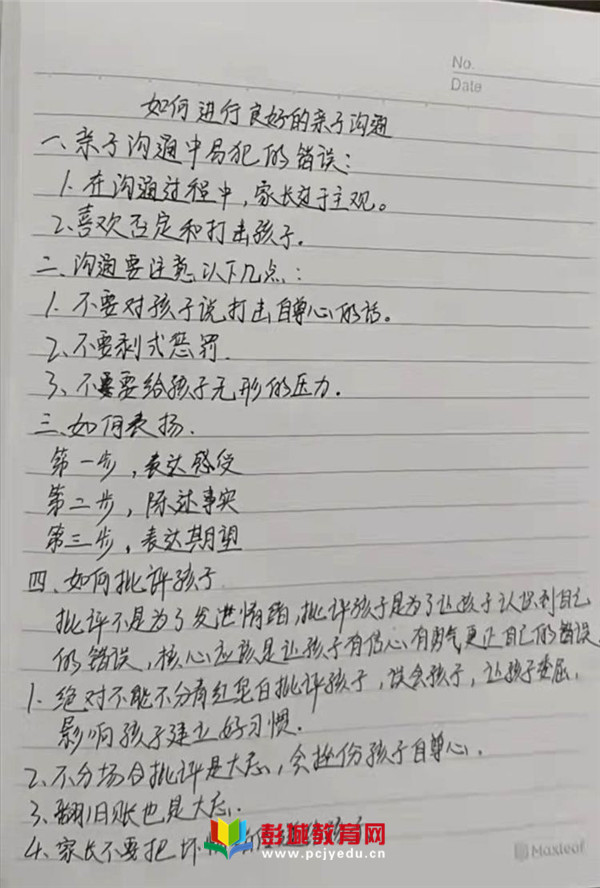 No.
Date
如何进行良好的亲子沟通
一、亲子沟通中易犯的错误：
1. 在沟通过程中，家长过于主观。
2. 喜欢否定和打击孩子。
二、沟通要注意以下几点：
1. 不要对孩子说打击自尊心的话。
2、不要剥式惩罚.
3、不要给孩子无形的压力.
三、如何表扬.
第一步，表达感受
第二步，陈述事实
第三步，表达期望
四、如何批评孩子
批评不是为了发泄情绪，批评孩子是为了让孩子认识到自己
的错误，核心应该是让孩子有信心有勇气更正自己的错误
1、绝对不能不分青红皂白批评孩子，误会孩子，让孩子委屈，
影响孩子建立好习惯.
2、不分场合批评是大忌，会挫伤孩子自尊心.
3、翻旧账也是大忌.
4、家长不要把坏
彭城教育网
www.pcjyedu.cn
Maxleaf